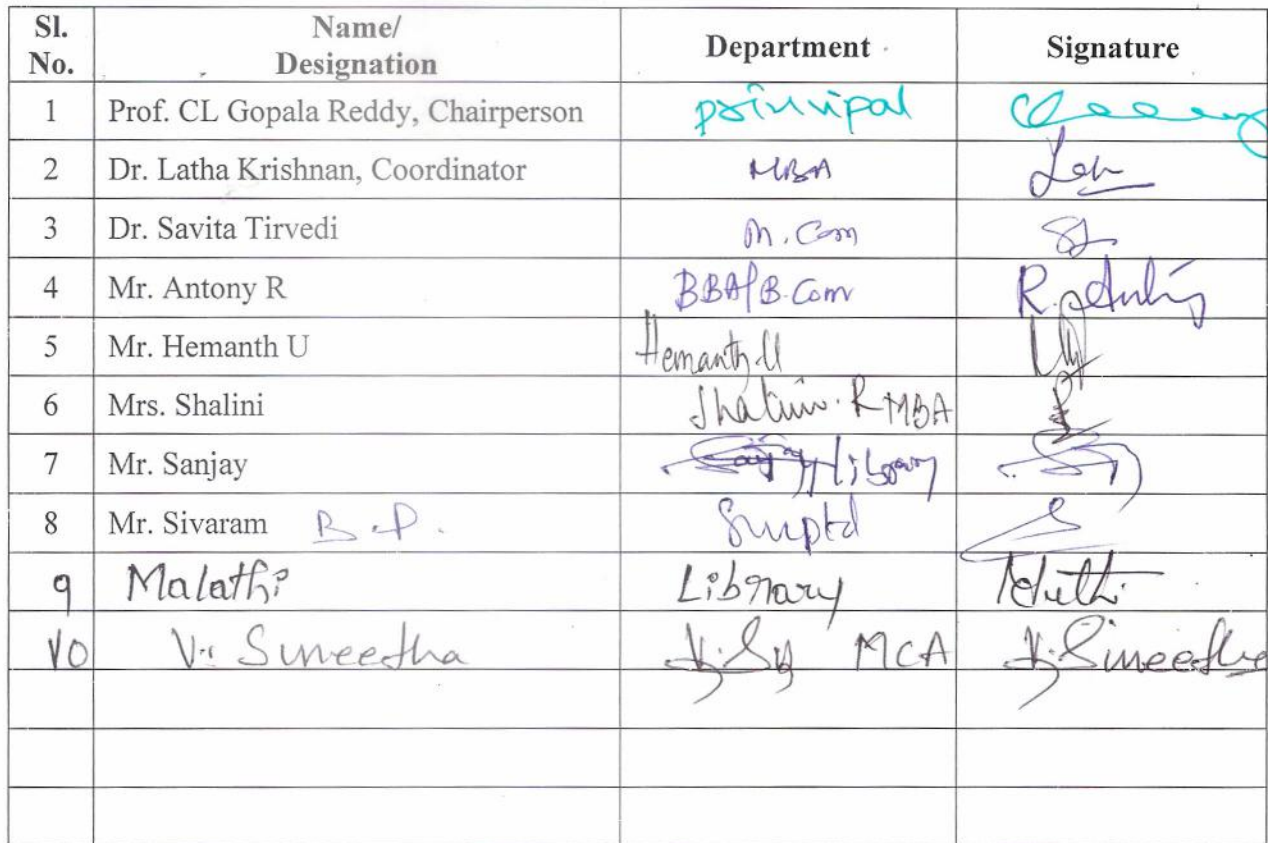 Sl. No. Name/ Designation Department Signature
1 Prof. CL Gopala Reddy, Chairperson principal
2 Dr. Latha Krishnan, Coordinator MBA
3 Dr. Savita Tirvedi M.Com
4 Mr. Antony R BBA/B.Com R. Antony
5 Mr. Hemanth U Hemanth.U
6 Mrs. Shalini Shalini.R MBA
7 Mr. Sanjay Library
8 Mr. Sivaram B.P. Suuptd
9 Malathi Library
10 V. Suneetha MCA V. Suneetha